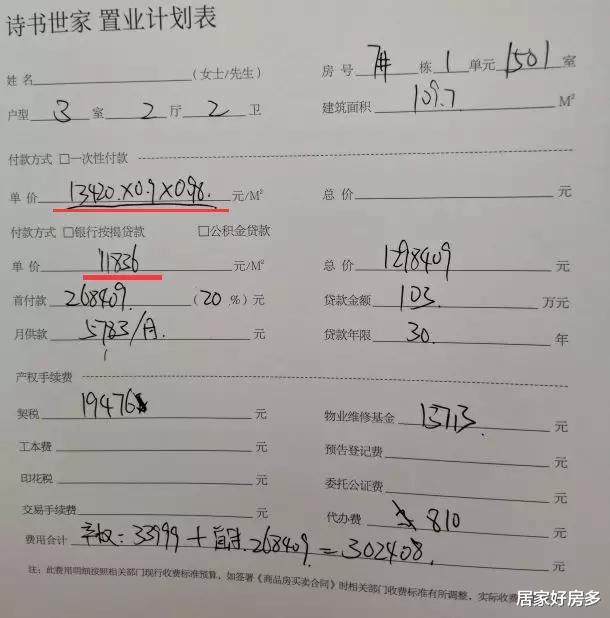 诗书世家 置业计划表
姓 名 （女士/先生） 房 号 7# 栋 1 单元 1501 室
户型 3 室 2 厅 2 卫 建筑面积 109.7 M²
付款方式 □一次性付款
单 价 13420×0.9×0.98 元/M² 总 价 元
付款方式 □银行按揭贷款 □公积金贷款
单 价 11836 元/M² 总 价 1298409 元
首付款 268409 （20 %）元 贷款金额 103 万元
月供款 5783/月 元 贷款年限 30 年
产权手续费
契税 19476 元 物业维修基金 13713 元
工本费 元 预告登记费 元
印花税 元 委托公证费 元
交易手续费 元 代办费 810 元
费用合计 产权：33999 + 首付 268409 = 302408 元
注：此费用明细按照相关部门现行收费标准预算，如签署《商品房买卖合同》时相关部门收费标准有所调整，实际收费
居家好房多